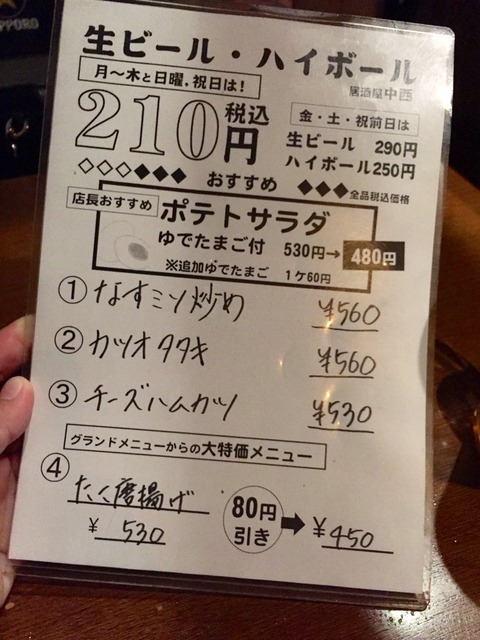 SAPPORO
生ビール・ハイボール
居酒屋中西
月〜木と日曜、祝日は!
210円 税込
金・土・祝前日は
生ビール 290円
ハイボール250円
◇◇◇◆◆◆ おすすめ ◆◆◆全品税込価格
店長おすすめ
ポテトサラダ
ゆでたまご付 530円→ 480円
※追加ゆでたまご 1ケ60円
① なすミソ炒め ¥560
② カツオタタキ ¥560
③ チーズハムカツ ¥530
グランドメニューからの大特価メニュー
④ たこ唐揚げ
¥530
80円引き ➡ ¥450